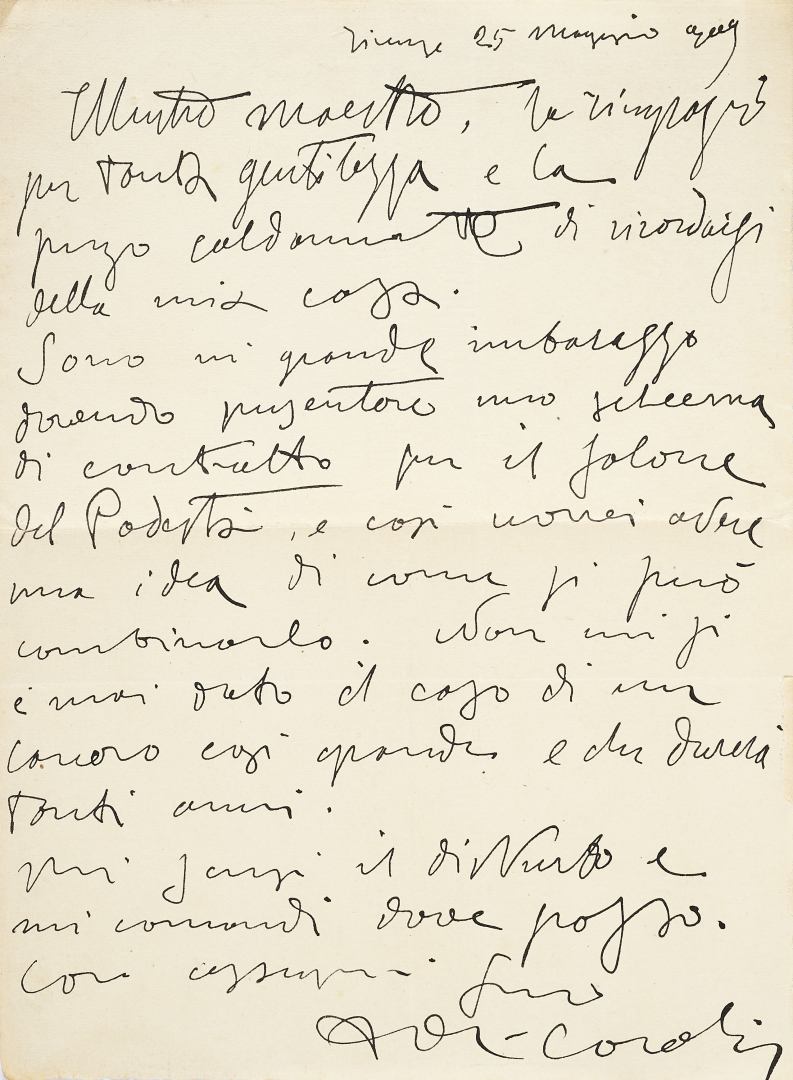 Firenze 25 maggio 1909
Illustre maestro, la ringrazio
per tanta gentilezza e la
prego caldamente di ricordarsi
della mia cosa.
Sono in grande imbarazzo
dovendo presentare uno schema
di contratto per il salone
del Podestà, e così vorrei avere
una idea di come si può
combinarlo. Non mi si
è mai dato il caso di un
lavoro così grande e che durerà
tanti anni.
Mi scusi il disturbo e
mi comandi dove posso.
Con ossequi Suo
A De Carolis